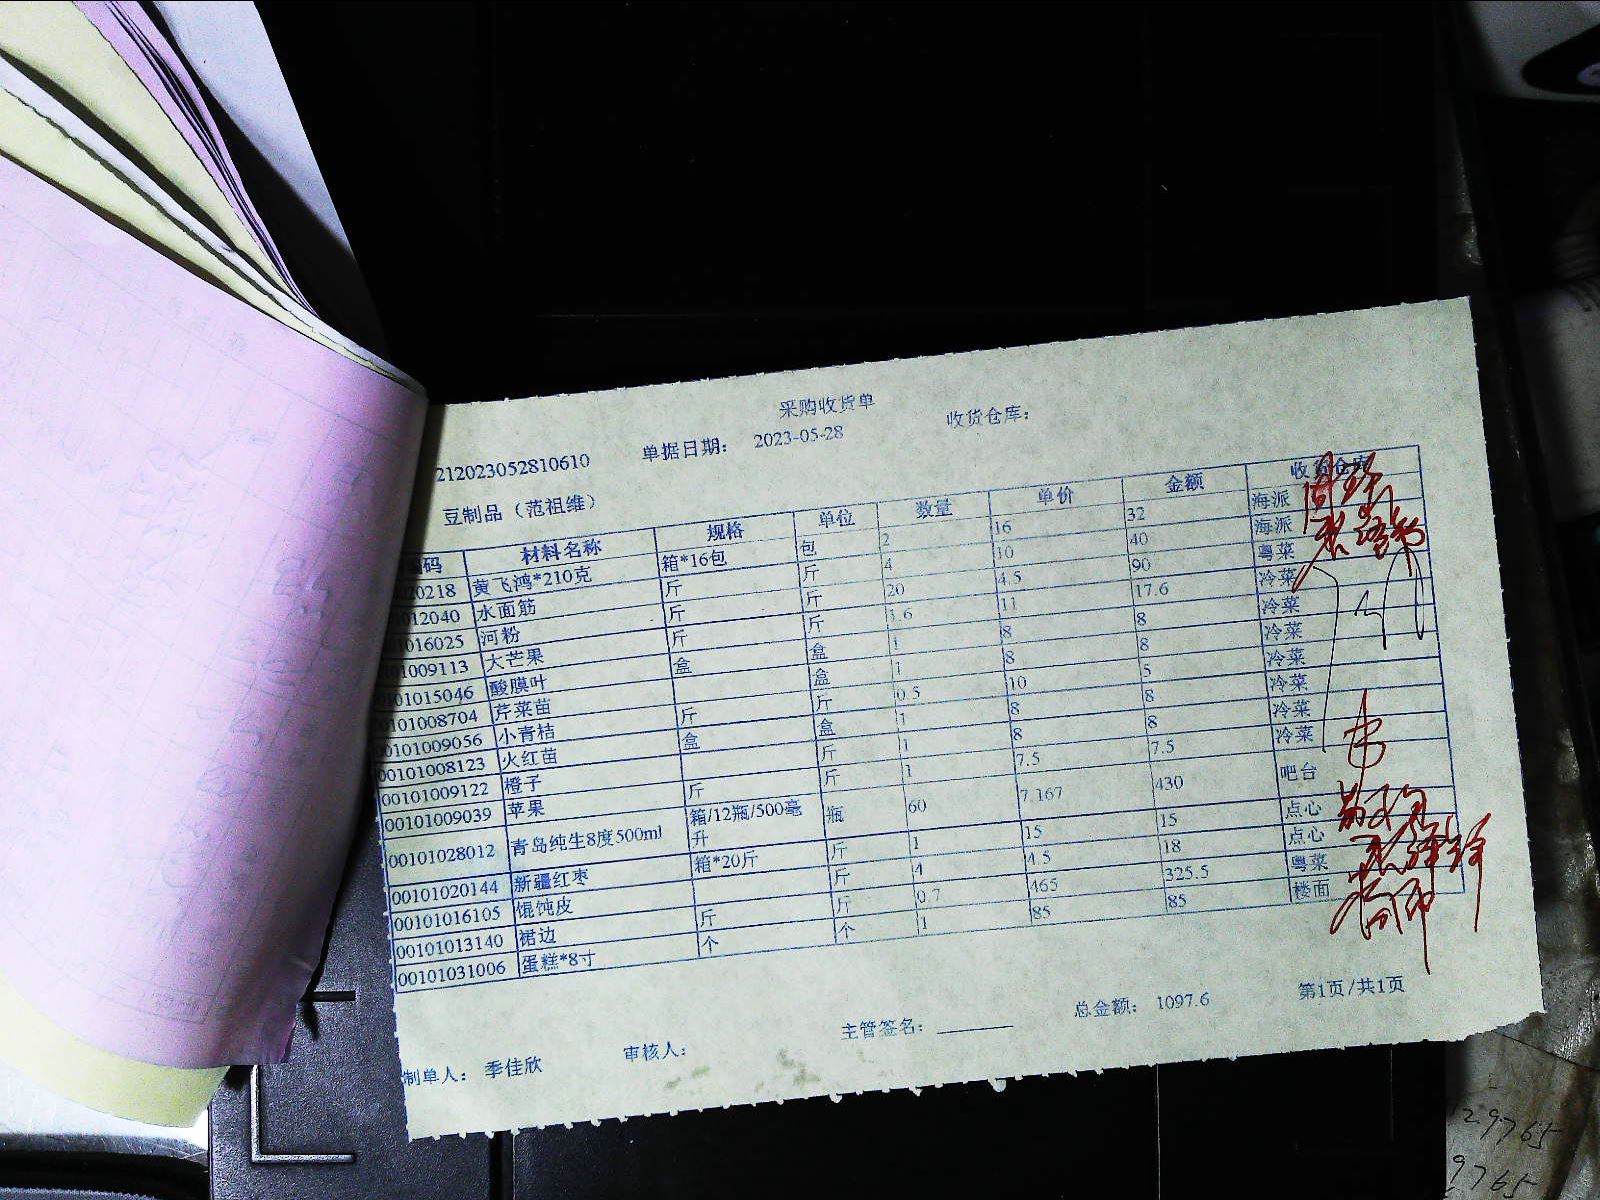 采购收货单
212023052810610 单据日期: 2023-05-28 收货仓库:
豆制品（范祖维）
码 材料名称 规格 单位 数量 单价 金额 收货仓库
020218 黄飞鸿*210克 箱*16包 包 2 16 32 海派
012040 水面筋 斤 斤 4 10 40 海派
1016025 河粉 斤 斤 20 4.5 90 粤菜
01009113 大芒果 斤 斤 1.6 11 17.6 冷菜
0101015046 酸膜叶 盒 盒 1 8 8 冷菜
0101008704 芹菜苗 盒 1 8 8 冷菜
00101009056 小青桔 斤 斤 0.5 10 5 冷菜
00101008123 火红苗 盒 盒 1 8 8 冷菜
00101009122 橙子 斤 1 8 8 冷菜
00101009039 苹果 斤 斤 1 7.5 7.5 冷菜
00101028012 青岛纯生8度500ml 箱/12瓶/500毫升 瓶 60 7.167 430 吧台
00101020144 新疆红枣 箱*20斤 斤 1 15 15 点心
00101016105 馄饨皮 斤 4 4.5 18 点心
00101013140 裙边 斤 斤 0.7 465 325.5 粤菜
00101031006 蛋糕*8寸 个 个 1 85 85 楼面
制单人: 季佳欣 审核人: 主管签名: 总金额: 1097.6 第1页/共1页
29765
9765